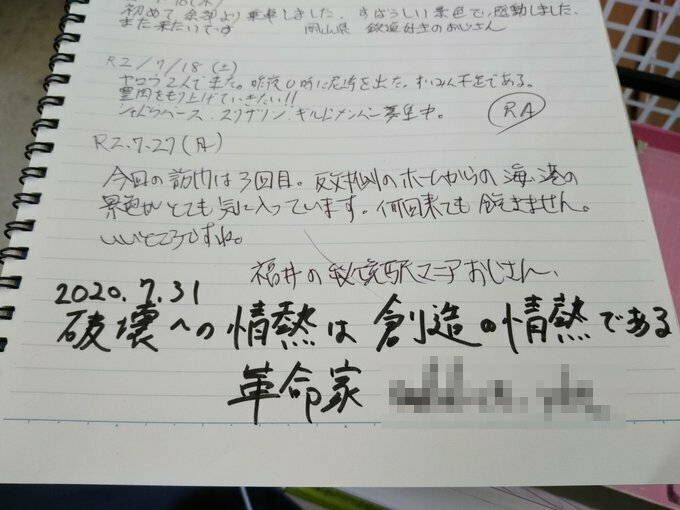 初めて 余部より乗車しました。すばらしい景色で、感動しました。
また来たいです 岡山県 鉄道好きのおじさん
R2/7/18(土)
ヤロウ2人で来た。昨夜0時に尼崎を出た。すいみん不足である。
豊岡をもり上げていきたい!!
シャドウバース・エクリプス ギルドメンバー募集中。
RA
R2.7.27(月)
今回の訪門は3回目。反対側のホームからの海、港の
景色がとても気に入っています。何回来ても飽きません。
いいところですね。
福井の秘境駅マニアおじさん、
2020.7.31
破壊への情熱は創造の情熱である
革命家